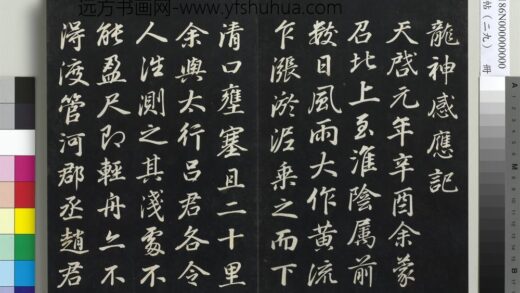 远方书画网-www.yfshuhua.com
龍神感應記
天啓元年辛酉余蒙
召北上至淮陰屬前
数日風雨大作黄流
乍漲淤泥乘之而下
清口壅塞且二十里
余與太行吕君各令
人往測之其淺處不
能盈尺即輕舟亦不
得渡管河郡丞趙君
186N000000000
帖（二九） 冊